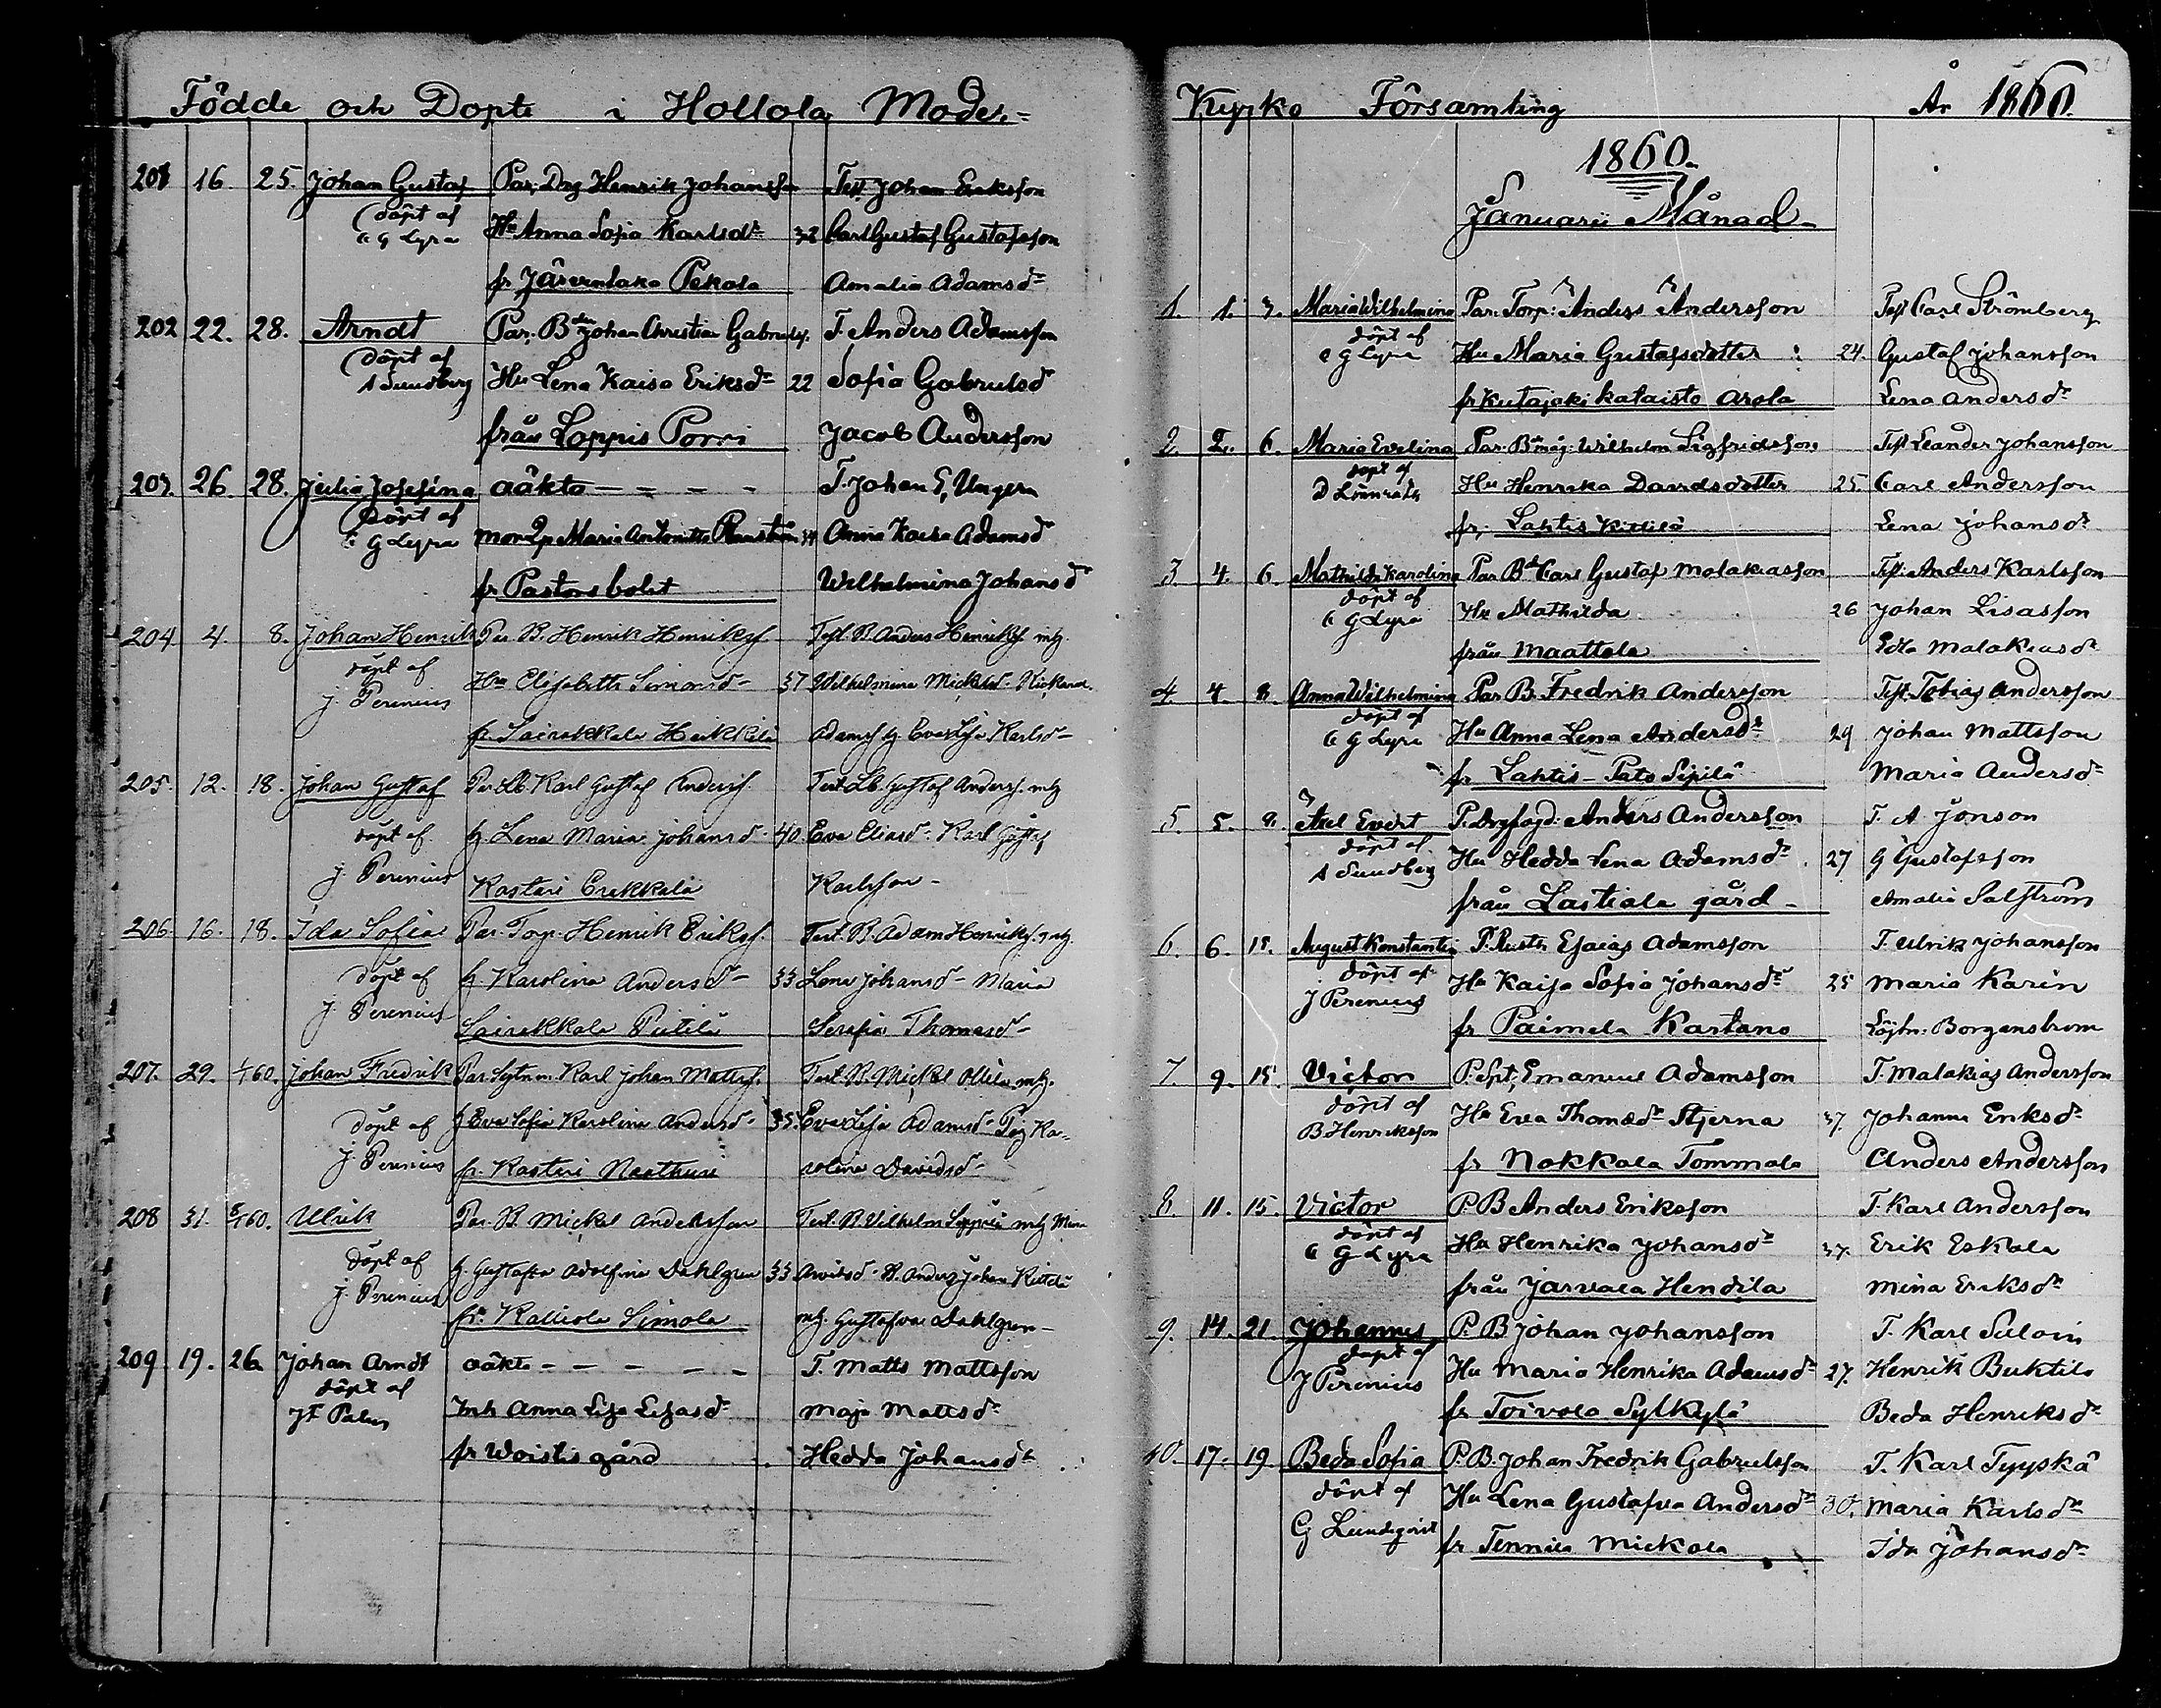 Födde och Döpte i Hollola Moder=
201 16. 25. Johan Gustaf Par. Drg Henrik Johansson Test. Johan Eriksson
döpt af Hu Anna Sofia Karlsdr 32 Carl Gustaf Gustafsson
C G Lyra
fr Järventaka Pekola Amalia Adamsdr
202 22. 28. Arndt Par. Bden Johan Christian Gabrielss. T. Anders Adamsson
döpt af
A Sundberg Hu Lena Kaisa Eriksdr 22 Sofia Gabrielsdr
från Loppis Porri Jacob Andersson
203. 26. 28. Julia Josefina oäkta - - - - T. Johan E, Ungern
döpt af
C G Lyra Maria Antonetta Anna Kaisa Adamsdr
fr Pastorsbolet Wilhelmina Johansdr
204 4. 8. Johan Henrik Par. B. Henrik Henrikss. Test. B. Anders Henrikss mh.
döpt af
J. Perenius Hu Elisabeth Simonsd- 37 Wilhelmina Mickelsd-
fr. Sairakkala Heikkilä Adamss h. Eva Lisa Karlsd-
205. 12. 18. Johan Gustaf Par. Lb. Karl Gustaf Anderss. Test. Lb. Gustaf Anderss. mh
döpt af h Lena Maria Johansd- 40. Eva Eliasd- Karl Gustaf
J. Perenius Kastari Erkkala Karlsson-
206. 16. 18. Ida Sofia Par. Torp. Henrik Erikss. Test. B. Adam Henrikss. mh.
döpt af h. Karolina Andersd- 33 Lena Johansd- Maria
J. Perenius Sairakkala Pietilä Serafia Thomasd-
207. 29. 1/1 60. Johan Fredrik Par. Sytnm. Karl Johan Mattss. Test. B. Mickel Ollila mh.
döpt af h Eva Sofia Karolina Andersd- 35. Eva Lisa Adamsd- Pig. Ka-
J. Perenius fr. Kastari Naathuri rolina Davidsd-
208 31. 8/1 60. Ulrik Par. B. Mickel Andersson Test. B. Wilhelm Seppälä mh Mina
döpt af h. Gustafva Adolfina Dahlgren 33 Arvidsd- B. Anders Johan
J. Perenius
fr. Kalliola Simola mh. Gustafva Dahlgren-
209 19. 26. Johan Arndt oäkta - - - - - T. Matts Mattsson
döpt af
Inh Anna Lisa Lisasdr Maja Mattsdr
fr Woistis gård Hedda Johansdr
Kyrko Församling År 1860.
1860.
Januarii Månad
1. 1. 3. Maria Wilhelmina Par. Torp: Anders Andersson Test Carl Strömberg
döpt af
C G Lyra Hu Maria Gustafsdotter 24. Gustaf Johansson
fr Kutajoki Kataisto Arola Lena Andersdr
2. 2. 6. Maria Evelina Par. Bmåg: Wilhelm Sigfridsson Test Leander Johansson
döpt af
D Lönnrot Hu Henrika Davidsdotter 25. Carl Andersson
fr. Lahtis Kittilä Lena Johansdr
3 4. 6. Mathilda Karolina Par Bde Carl Gustaf Malakiasson Test. Anders Karlsson
döpt af
C G Lyra Hu Mathilda 26 Johan Lisasson
från Maattola Edla Malakiasdr
4. 4. 8. Anna Wilhelmina Par B. Fredrik Andersson Test. Tobias Andersson
döpt af
C G Lyra Hu Anna Lena Andersdr 29 Johan Mattsson
fr Lahtis - Pato Sipilä Maria Andersdr
5. 5. 8. Axel Evert P. Drgfogd: Anders Andersson T. A Jonson
döpt af
A Sundberg Hu Hedda Lena Adamsdr 27 G Gustafsson
från Lastiala gård - Amalia Salström
6. 6. 15. August Konstantin P. Rusth Esaias Adamsson T. Ulrik Johansson
döpt af
J Perenius Hu Kaisa Sofia Johansdr 25 Maria Karin
fr Paimela Kartano Löjtn: Borgenstrom
7. 9. 15. Victor P. Spt, Emanuel Adamsson T. Malakias Andersson
döpt af
B Henriksson Hu Eva Thomasdr Stjerna 37. Johanna Eriksdr
fr Nokkola Tommola Anders Andersson
8. 11. 15. Victor P. B Anders Eriksson T. Karl Andersson
döpt af
C G Lyra Hu Henrika Johansdr 37. Erik Eskola
från Jarvala Hendila Mina Eriksdr
9. 14. 21. Johannes P. B Johan Johansson T. Karl Suloin
döpt af
J Perenius Hu Maria Henrika Adamsdr 27. Henrik
fr Toivola Sylkylä Beda Henriksdr
10. 17. 19. Beda Sofia P. B. Johan Fredrik Gabrielsson T. Karl Tyyskä
döpt af Hu Lena Gustafva Andersdr 30. Maria Karlsdr
G Lundqvist fr Tennilä Mickola Ida Johansdr